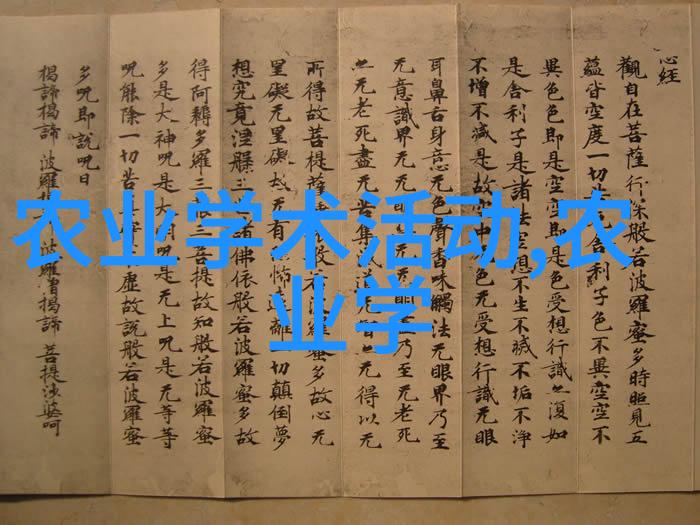 心经
觀自在菩薩行深般若波羅蜜多時照見五
蘊皆空度一切舍利子色不異空空不
異色色即是空空即是色受想行識亦復如
是舍利子是諸法空想不生不滅不垢不淨
不增不減是故空中色无受想行識无眼
耳鼻舌身意无色聲香味觸法无眼界乃至
无意識界无无明乃至无老死
亦无老死盡无苦集道无智亦无得以无
所得故菩提薩般若波羅蜜多故心无
罣礙无罣礙故无有怖遠離一切顛倒夢
想究竟涅槃三諸佛依般若波羅蜜多故
得阿耨多羅三藐三菩提故知般若波羅蜜
多是大神呪是大明呪是无上呪是无等等
呪能除一切苦虛故說般若波羅蜜
多呪即說呪曰
揭諦揭諦 波羅揭 波羅僧揭諦 菩提莎婆呵
农业学术活动,农
业学